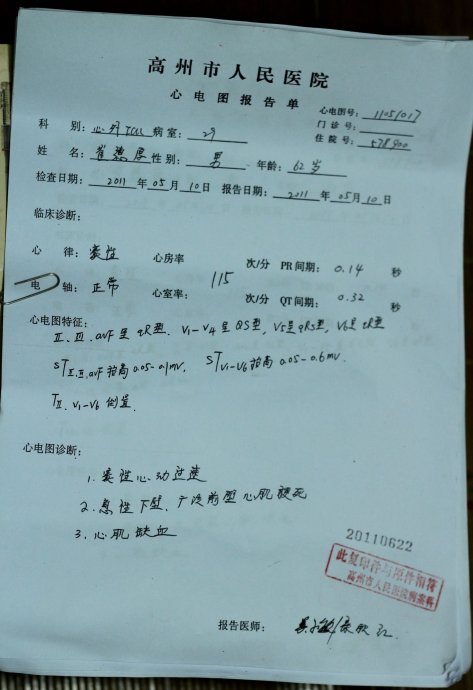 高州市人民医院
心电图报告单
心电图号：11051017
科 别：心外ICU 病室：29 门诊号：
住院号：578900
姓 名： 性别：男 年龄：62岁
检查日期：2011年05月10日 报告日期：2011年05月10日
临床诊断：
心 律：窦性 心房率 次/分 PR间期：0.14 秒
115
电 轴：正常 心室率： 次/分 QT间期：0.32 秒
心电图特征：
II、III、avF呈qR型，V1-V4呈QS型，V5呈qRS型，V6呈qR型
STII、III、avF抬高0.05-0.1mV，STV1-V6抬高0.05-0.6mV.
TII、V1-V6倒置.
心电图诊断：
1. 窦性心动过速
2. 急性下壁、广泛前壁心肌梗死
3. 心肌缺血
20110622
此复印件与原件相符
高州市人民医院病案科
报告医师：